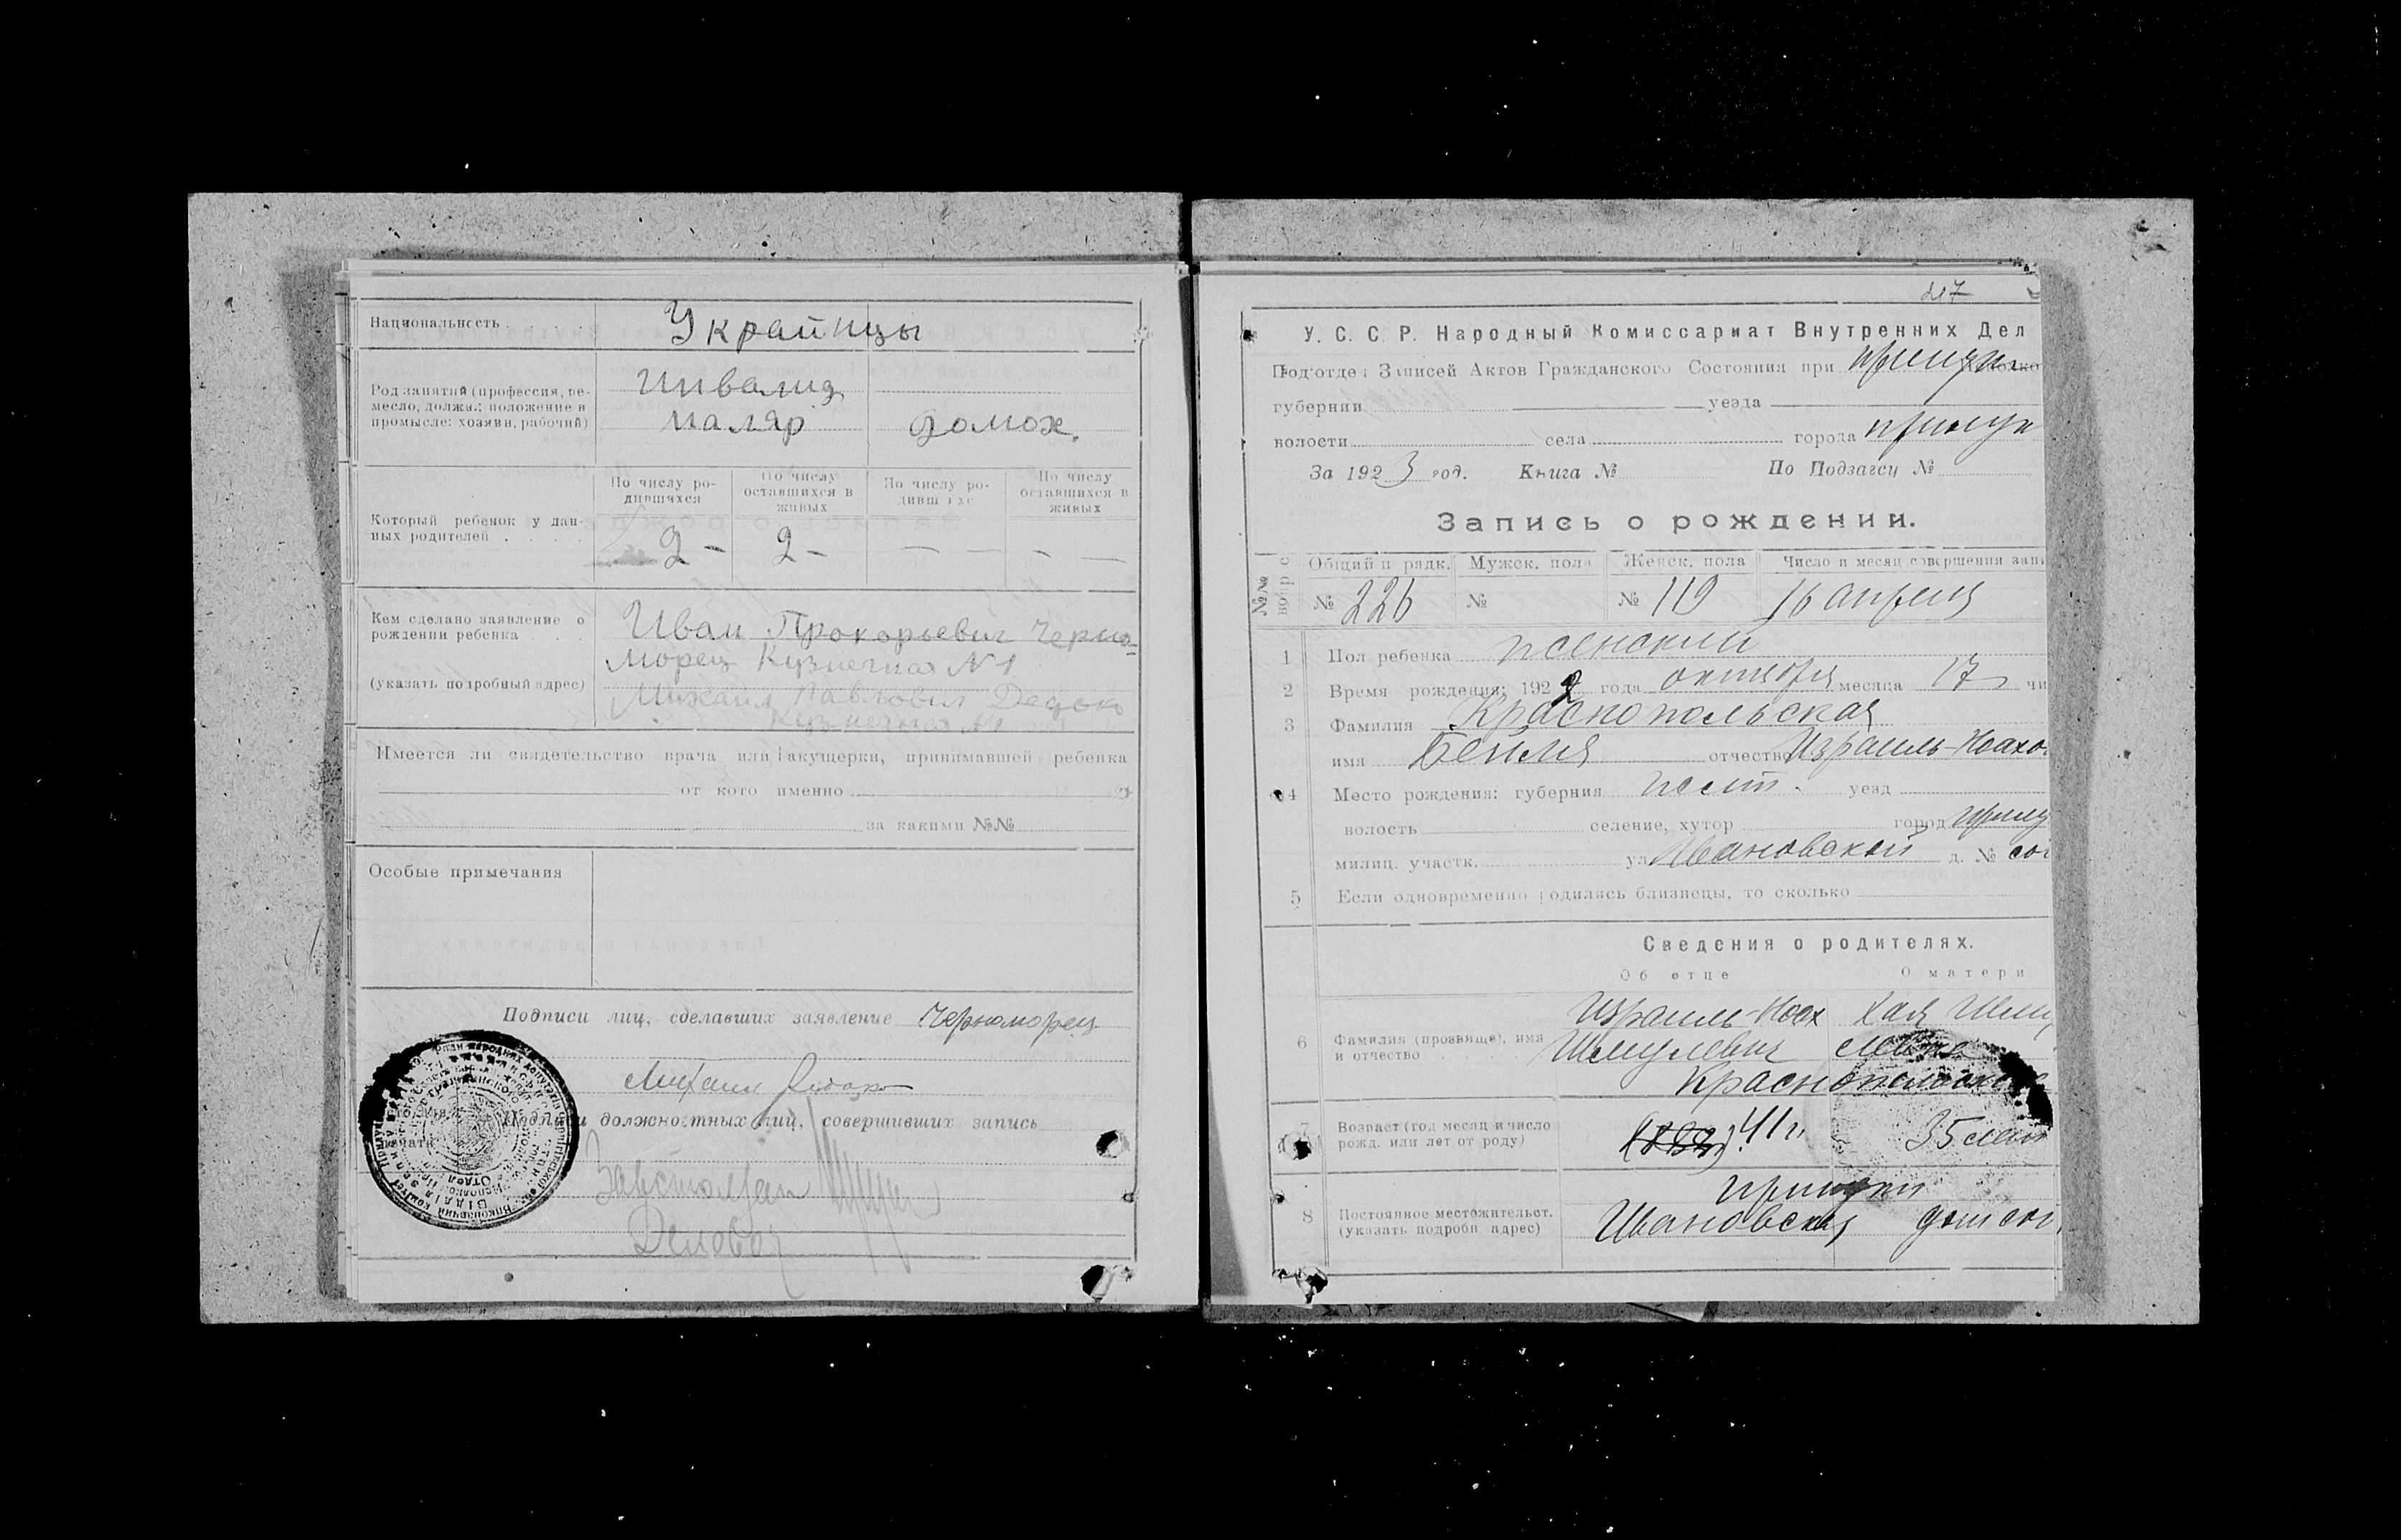 Национальность Украинцы
Род занятий (профессия, ре-
месло, должн.; положение в
промысле: хозяин, рабочий)
Инвалид
маляр домохоз.
По числу ро-
дившихся
По числу
оставшихся в
живых
По числу ро-
дивш хс
По числу
оставшихся в
живых
Который ребенок у дан-
ных родителей . . . .
2 – 2 – — — - —
Кем сделано заявление о
рождении ребенка . . .
(указать подробный адрес)
Иван Прокорьевич Черно-
морец Кузнечная N 1
Михаил Павлович Дедько
Кузнечная N 1
Имеется ли свидетельство врача или акушерки, принимавшей ребенка
от кого именно
за какими №№
Особые примечания
Подписи лиц, сделавших заявление Черноморец
Михаил
Подписи должностных лиц, совершивших запись
Завстолом
Деловод
217
У. С. С. Р. Народный Комиссариат Внутренних Дел
Подотдел Записей Актов Гражданского Состояния при
губернии уезда
волости села города Прилук
За 1923 год. Книга № По Подзагсу №
Запись о рождении.
№№
Общий п рядк. Мужск. пола Женск. пола Число и месяц совершения запи
№ 226 № № 119 16 апреля
1 Пол ребенка женский
2 Время рождения: 1922 года октября месяца 17 чи
3 Фамилия Краснопольская
имя Бейля отчество Израиль-Ноахо
4 Место рождения: губерния Полт. уезд
волость селение, хутор город Прилу
милиц. участк. ул Ивановской д. № соб
5 Если одновременно родились близнецы, то сколько
Сведения о родителях.
Об отце О матери
6 Фамилия (прозвище), имя
и отчество
Израиль-Ноех Хая
Шмулевич
Краснопольские
7 Возраст (год месяц и число
рожд. или лет от роду)
41 г. 35 лет
8 Постоянное местожительст.
(указать подробн адрес)
Прилуки
Ивановская дом соб.